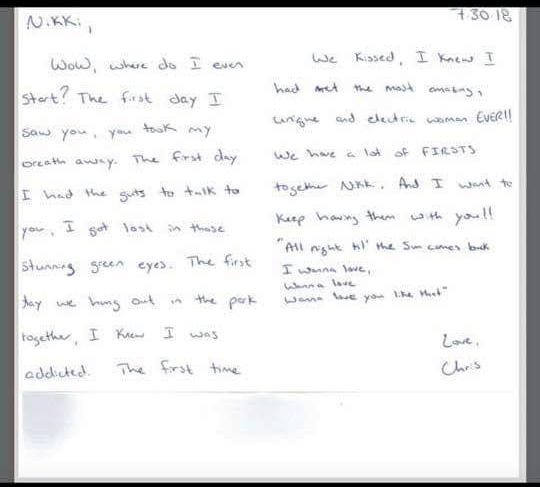 Nikki,
Wow, where do I even
start? The first day I
saw you, you took my
breath away. The first day
I had the guts to talk to
you, I got lost in those
stunning green eyes. The first
day we hung out in the park
together, I knew I was
addicted. The first time
7.30.18
We kissed, I knew I
had met the most amazing,
unique and electric woman EVER!!
We have a lot of FIRSTS
together Nikk. And I want to
keep having them with you!!
"All night til' the sun comes back
I wanna love,
Wanna love
Wanna love you like that"
Love,
Chris